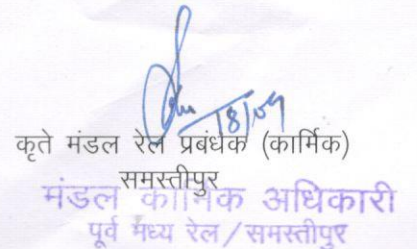 18/09
कृते मंडल रेल प्रबंधक (कार्मिक)
समस्तीपुर
मंडल कार्मिक अधिकारी
पूर्व मध्य रेल/समस्तीपुर